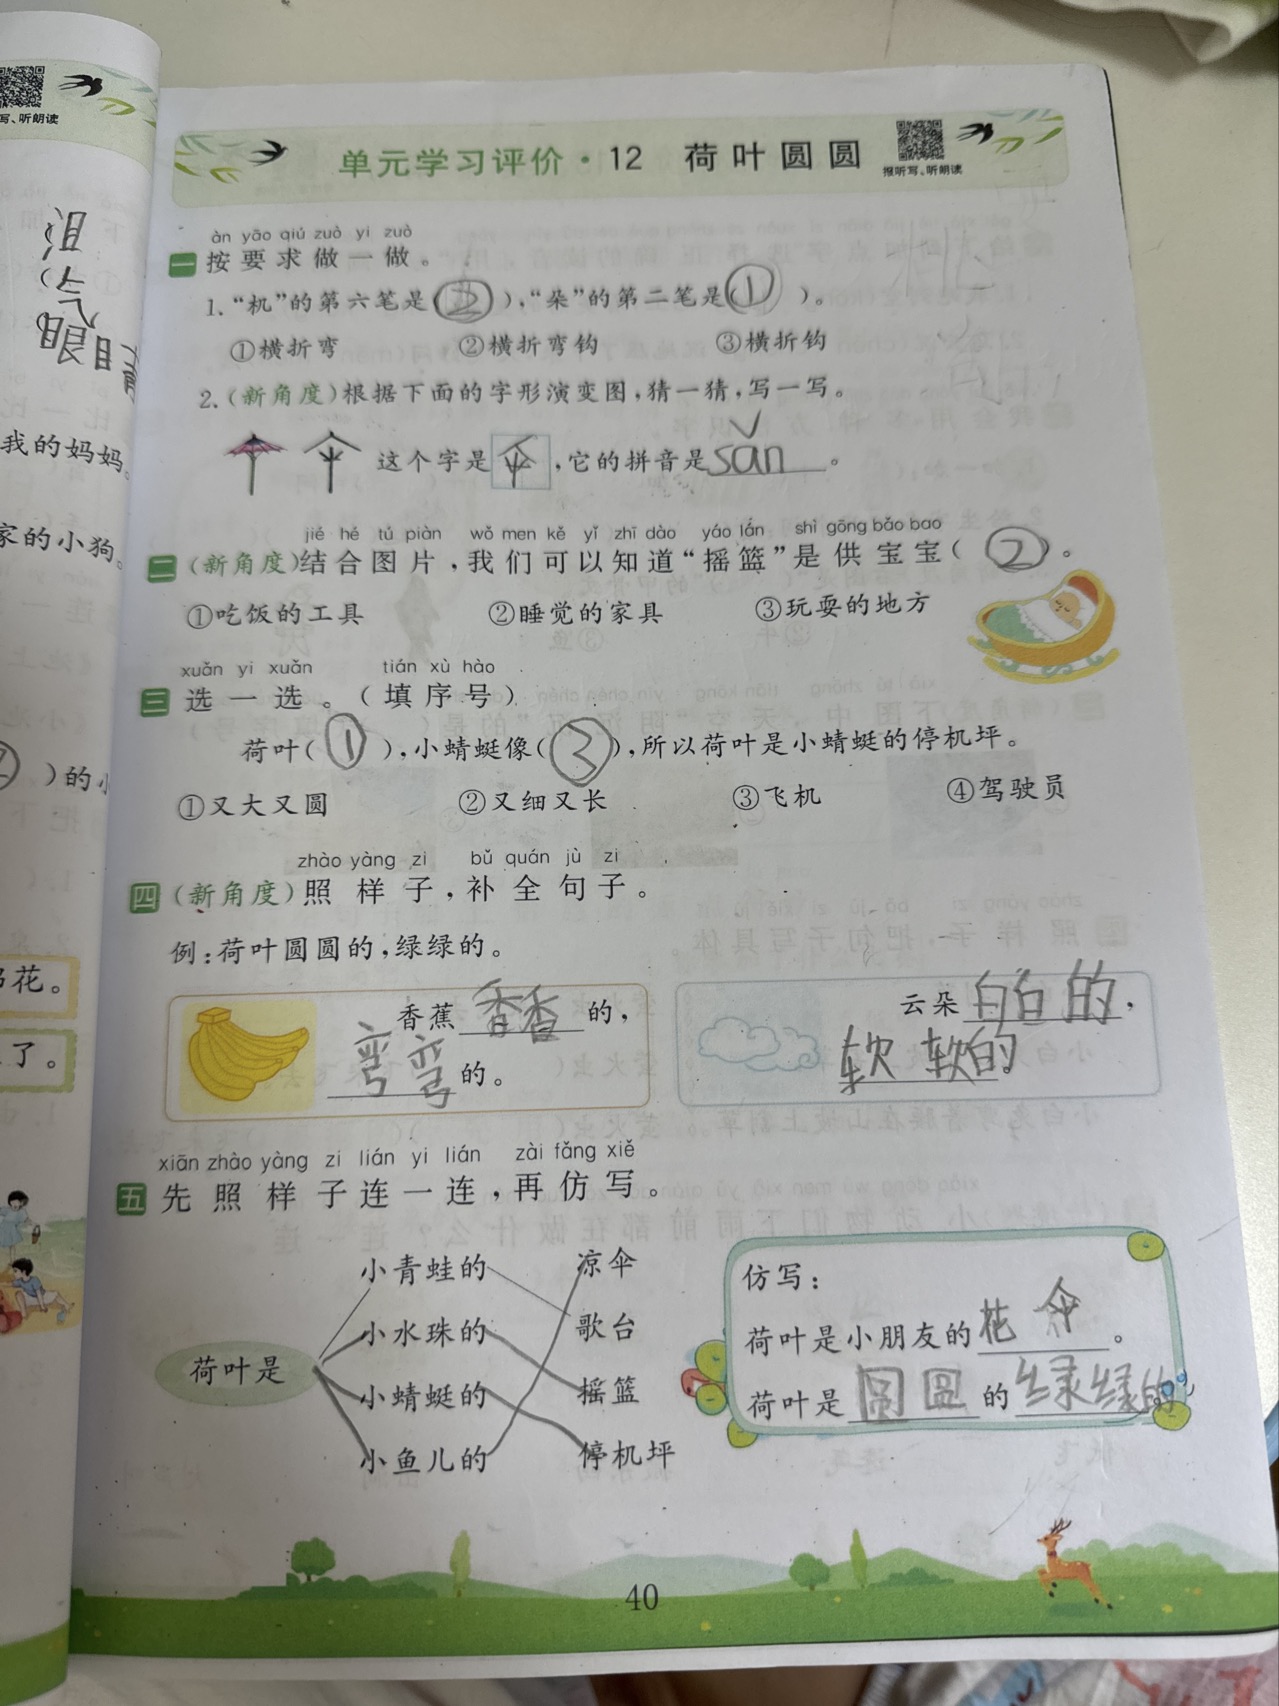 写、听朗读
眼
气
眼
睛
我的妈妈。
家的小狗。
)的小
花。
了。
单元学习评价·12 荷叶圆圆
报听写、听朗读
àn yāo qiú zuò yi zuò
一 按要求做一做。
1.“机”的第六笔是(②),“朵”的第二笔是(①)。
①横折弯 ②横折弯钩 ③横折钩
2.(新角度)根据下面的字形演变图,猜一猜,写一写。
这个字是伞,它的拼音是sǎn。
jié hé tú piàn wǒ men kě yǐ zhī dào yáo lán shì gōng bǎo bao
二 (新角度)结合图片,我们可以知道“摇篮”是供宝宝(②)。
①吃饭的工具 ②睡觉的家具 ③玩耍的地方
xuǎn yi xuǎn tián xù hào
三 选一选。(填序号)
荷叶(①),小蜻蜓像(③),所以荷叶是小蜻蜓的停机坪。
①又大又圆 ②又细又长 ③飞机 ④驾驶员
zhào yàng zi bǔ quán jù zi
四 (新角度)照样子,补全句子。
例:荷叶圆圆的,绿绿的。
香蕉香香的,
弯弯的。
云朵白白的,
软软的。
xiān zhào yàng zi lián yi lián zài fǎng xiě
五 先照样子连一连,再仿写。
荷叶是
小青蛙的
小水珠的
小蜻蜓的
小鱼儿的
凉伞
歌台
摇篮
停机坪
仿写:
荷叶是小朋友的花伞。
荷叶是圆圆的绿绿的
40